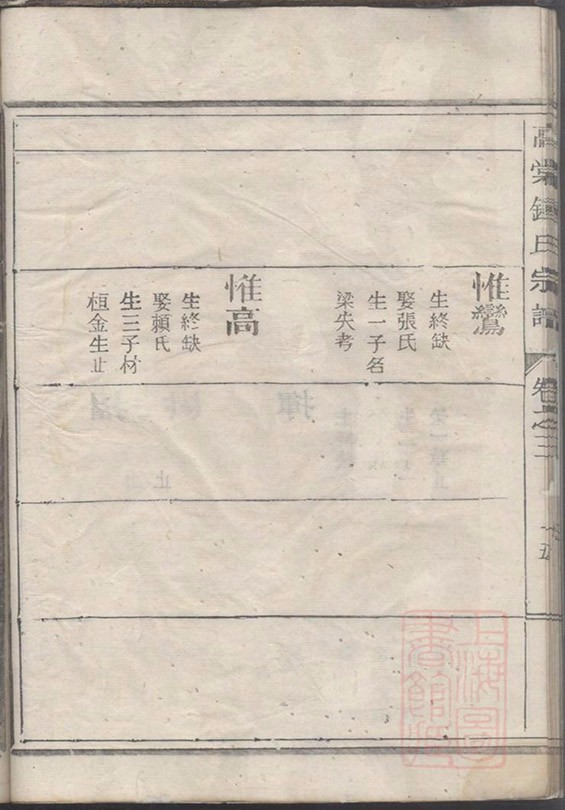 高棠鍾氏宗譜
卷之三
五
惟鸞
生終缺
娶張氏
生一子名
梁失考
惟高
生終缺
娶賴氏
生三子材
桓金生止
上海圖
書館藏